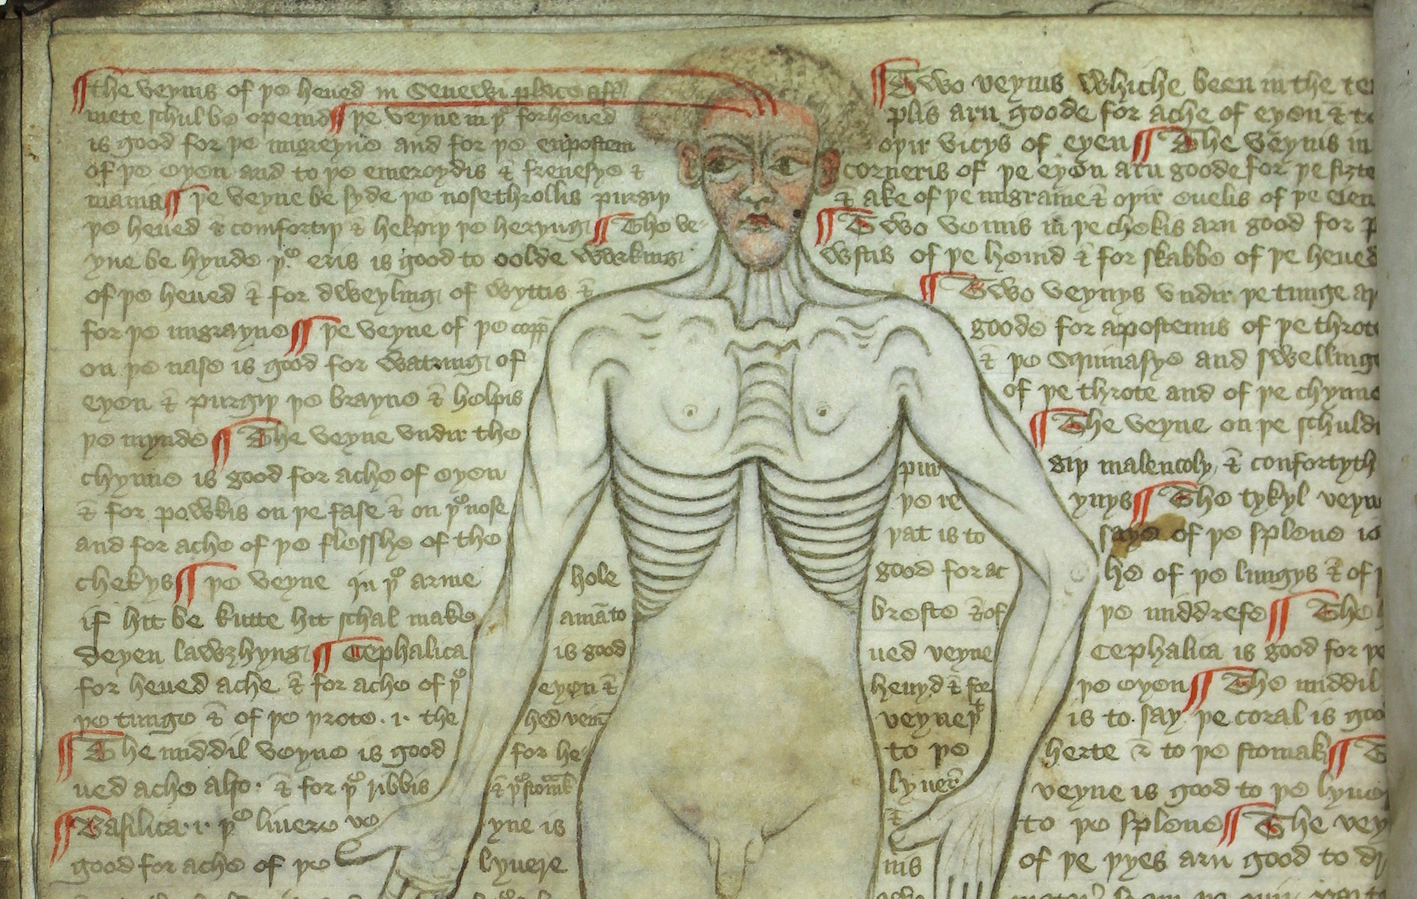 ¶ the veynis of þe heued in Senewi place aftir
mete schul be opened ¶ þe veyne in þe forheued
is good for þe migreyne and for þe enpostem
of þe eyen and to þe emeroydis & frenesye &
mania ¶ þe veyne be syde þe nosethrollis purgiþ
þe heued & comfortiþ & helpiþ þe heryng ¶ The ve-
yne be hynde þe eris is good to oolde werking
of þe heued & for dweyling of wyttis &
for þe migrayne ¶ þe veyne of þe copp
on þe nase is good for watring of
eyen & purgiþ þe brayne & helpis
þe mynde ¶ The veyne vndir the
chynne is good for ache of eyen
& for powkis on þe fase & on þe nose
and for ache of þe flesshe of the
chekys ¶ þe veyne in þe arme hole
if hit be kutte hit schal make a man to
deyen lawzhyng ¶ Cephalica is good
for heued ache & for ache of þe eyen &
þe tunge & of þe þrote .i. the hed veine
¶ The middil veyne is good for he-
ued ache also & for þe ribbis & þe stomak
¶ Basilica .i. þe liuere veyne is
good for ache of þe lyuere
¶ Two veynis whiche been in the te
plis arn goode for ache of eyen & to
oþir vicys of eyen ¶ The veynis in
corneris of þe eyen arn goode for þe sizte
& ake of þe migraine & oþir euelis of þe
¶ Two veinis in þe chekis arn good for
of þe heuid & for skabbe of þe heued
¶ Two veynys vndir þe tunge ar
goode for apostemis of þe throte
& þe squinasye and swellinge
of þe throte and of þe chynne
¶ The veyne on þe schuld
pur diþ malencoly & confortyth
þe re ynys ¶ The tykyl veyn
þat is to saye of þe splene is
good for ac he of þe lungys & of
breste & of þe middrefe ¶ The h
ued veyne Cephalica is good for þe
heuyd & for þe eyen ¶ The middil
veyne þt is to say þe coral is goo
to þe herte & to þe stomak ¶
lyuere veyne is good to þe lyue
& to þe splene ¶ The vey
nis of þe yyes arn good to dr